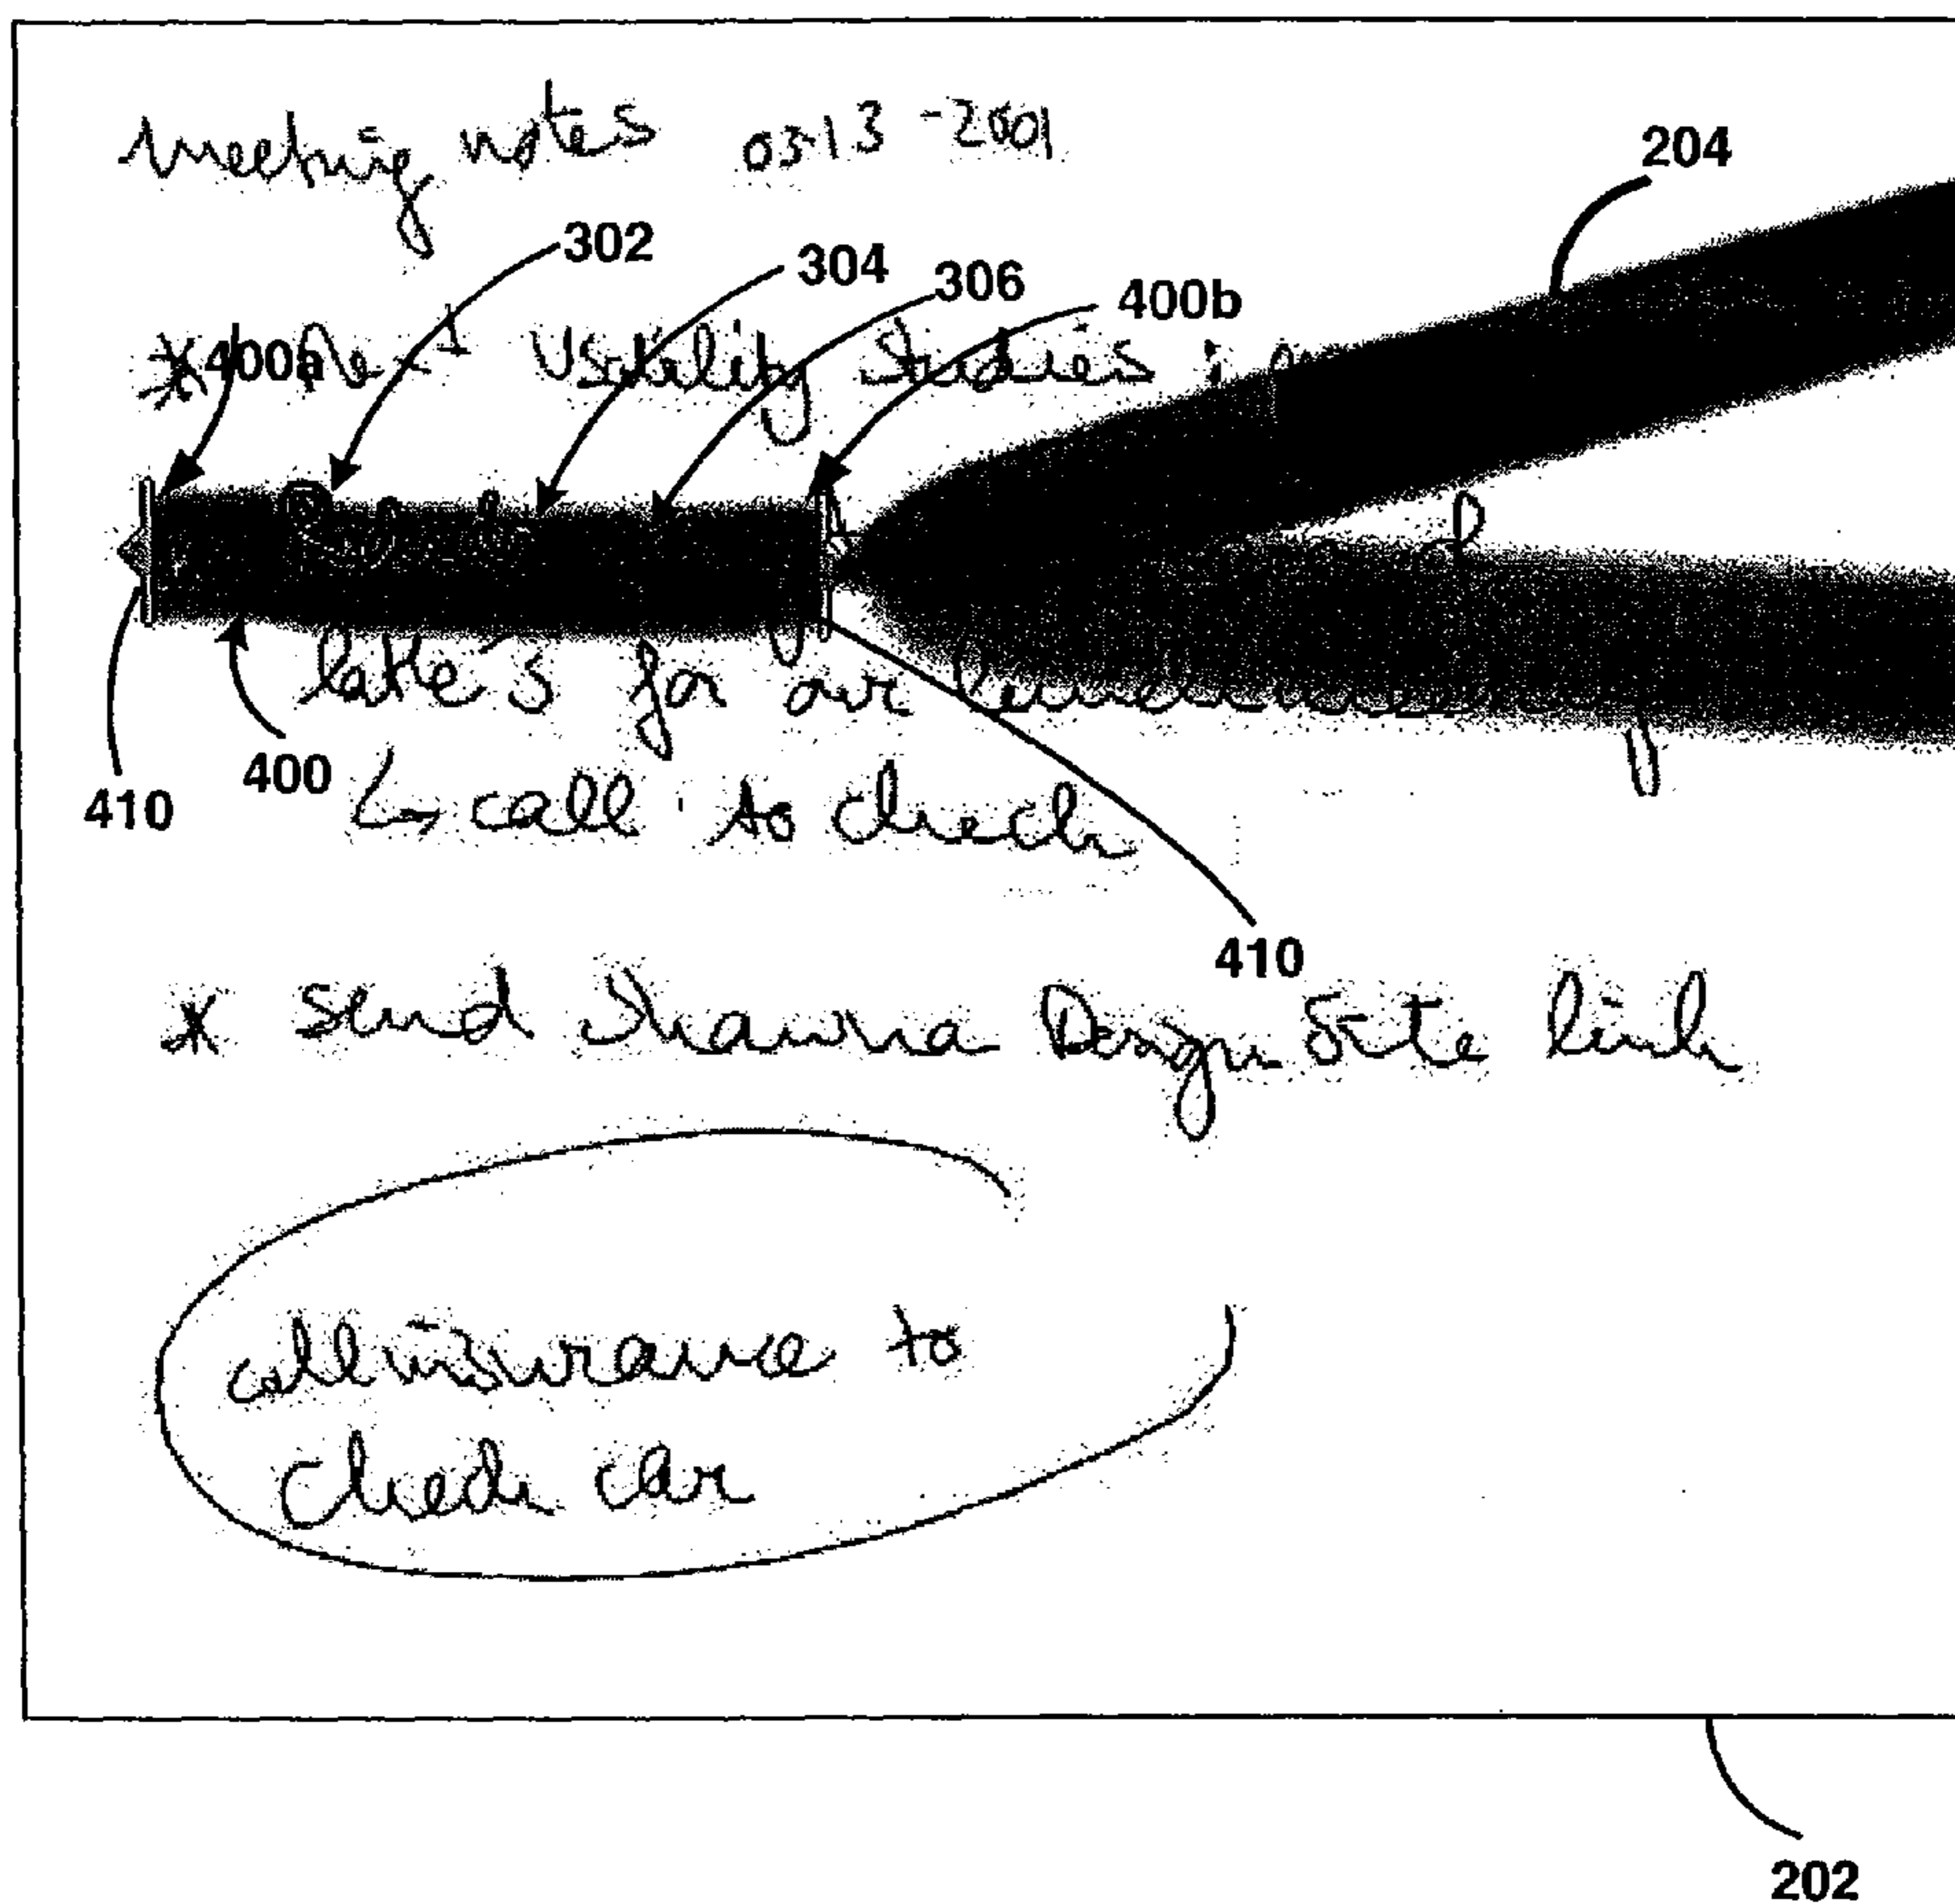 Meeting notes 03-13-2001
204
302
304
306
400b
* 400a Usability Studies :
late 3 for our
400
410
↳ call to check
410
* Send Shawna Design Site link
call insurance to
check car
202